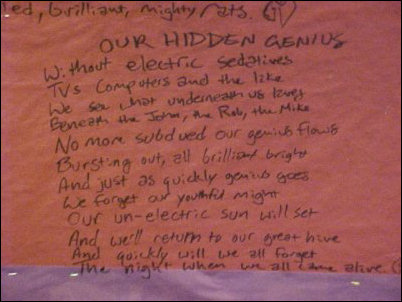 led, brilliant, mighty rats.
OUR HIDDEN GENIUS
Without electric sedatives
TVs Computers and the like
We see what underneath us lives
Beneath the John, the Rob, the Mike
No more subdued our genius flows
Bursting out, all brilliant bright
And just as quickly genius goes
We forget our youthful might
Our un-electric sun will set
And we'll return to our great hive
And quickly will we all forget
The night when we all came alive.